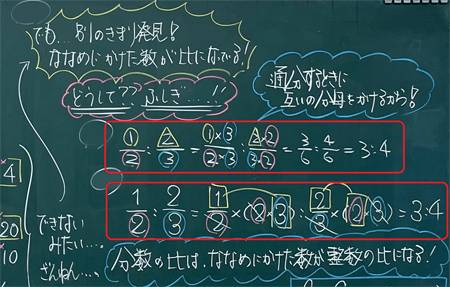 でも…別のきまり発見！
ななめにかけた数が比になってる！
どうして?? ふしぎ…!!
通分するときに
互いの分母をかけるから！
1/2 : 2/3 = 1×3/2×3 : 2×2/3×2 = 3/6 : 4/6 = 3:4
1/2 : 2/3 = 1/2 ×(2×3) : 2/3 ×(2×3) = 3:4
4
20
×10
できない
みたい…。
ざんねん…。
分数の比は、ななめにかけた数が整数の比になる！